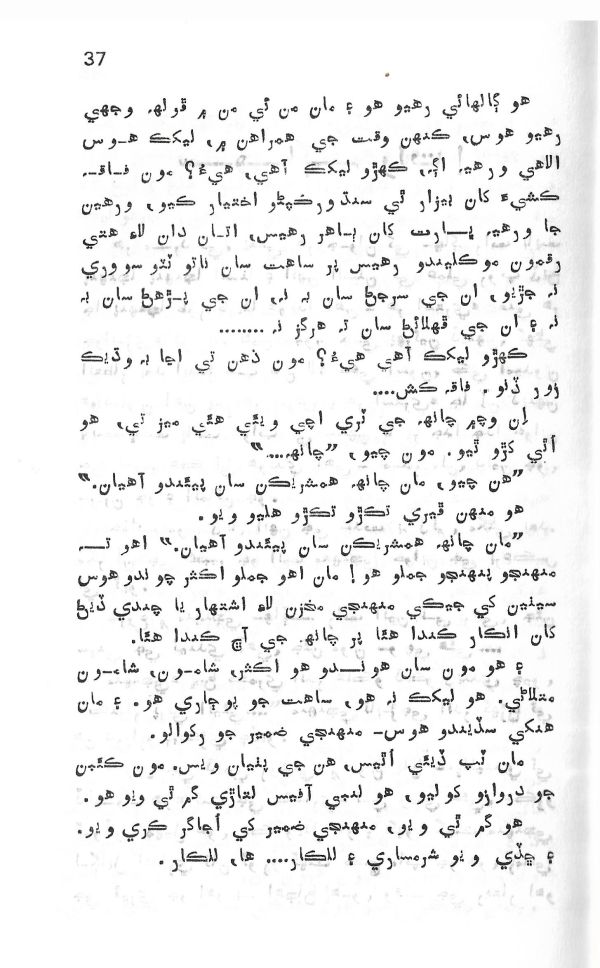 37
هو ڳالهائي رهيو هو ۽ مان من ئي من ۾ ڦولهه وجهي
رهيو هوس، ڪنهن وقت جي همراهن ۾، ليکڪ هــوس
الاهي ورهيه اڳ، ڪهڙو ليکڪ آهي، هيءُ؟ مون فـاقـه
ڪشيءَ کان بيزار ٿي سنڌ ورڪڻو اختيار ڪيو، ورهين
جا ورهيه ڀــارت کان ٻـاهر رهيس، اتـان دان لاءِ هتي
رقمون موڪليندو رهيس پر ساهت سان ناتو ٽٽو سو وري
نه جڙيو، ان جي سرجڻ سان به نه، ان جي پـڙهڻ سان به
نه ۽ ان جي ڦهلائڻ سان ته هرگز نه ........
ڪهڙو ليکڪ آهي هيءُ؟ مون ذهن تي اڃا به وڌيڪ
زور ڏنو. فاقہ ڪش....
اِن وچ ۾ چانهه جي ٽري اچي ويئي هئي ميز تي، هو
اُٿي کڙو ٿيو. مون چيو، ”چانهه....“
”هن چيو، مان چانهه همشريڪن سان پيئندو آهيان.“
هو منهن ڦيري تڪڙو تڪڙو هليو ويو.
”مان چانهه همشريڪن سان پيئندو آهيان.“ اهو تــه
منهنجو پنهنجو جملو هو! مان اهو جملو اڪثر چوندو هوس
سيٺين کي جيڪي منهنجي مخزن لاءِ اشتهار يا چندي ڏيڻ
کان انڪار ڪندا هئا پر چانهه جي آڇ ڪندا هئا.
۽ هو مون سان هونــدو هو اڪثر، شامــون، شامــون
متلائي. هو ليکڪ نه هو، ساهت جو پوڄاري هو. ۽ مان
هنکي سڏيندو هوس- منهنجي ضمير جو رکوالو.
مان ٽپ ڏيئي اُٿيس، هن جي پٺيان ويس. مون ڪئبن
جو دروازو کوليو، هو لنبي آفيس لتاڙي گم ٿي ويو هو.
هو گم ٿي ويو، منهنجي ضمير کي اُجاگر ڪري ويو.
۽ ڇڏي ويو شرمساري ۽ للڪار.... ها، للڪار.